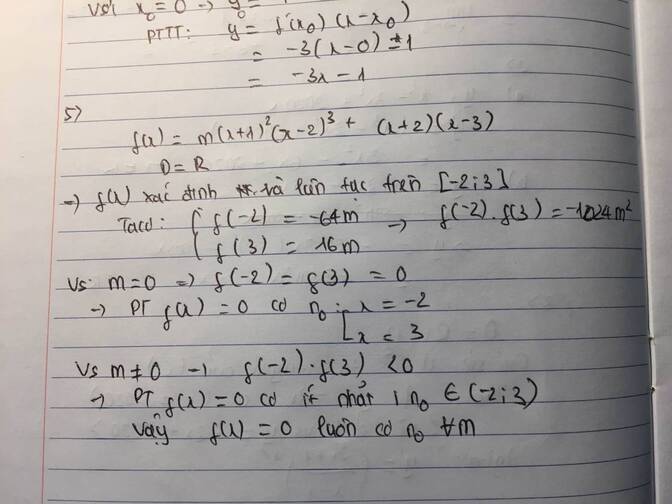 Với x₀ = 0 → y₀ =
PTTT: y = f'(x₀)(x - x₀)
= -3(x - 0) ± 1
= -3x - 1
5)
f(x) = m(x+1)²(x-2)³ + (x+2)(x-3)
D = R
→ f(x) xác định và liên tục trên [-2;3]
Tacó: { f(-2) = -64m → f(-2).f(3) = -1024m²
f(3) = 16m
Vs: m=0 => f(-2) = f(3) = 0
→ PT f(x) = 0 có n₀ [ x = -2
x = 3
Vs m ≠ 0 → f(-2).f(3) < 0
→ PT f(x) = 0 có ít nhất 1 n₀ ∈ (-2;3)
Vậy f(x) = 0 luôn có n₀ ∀m